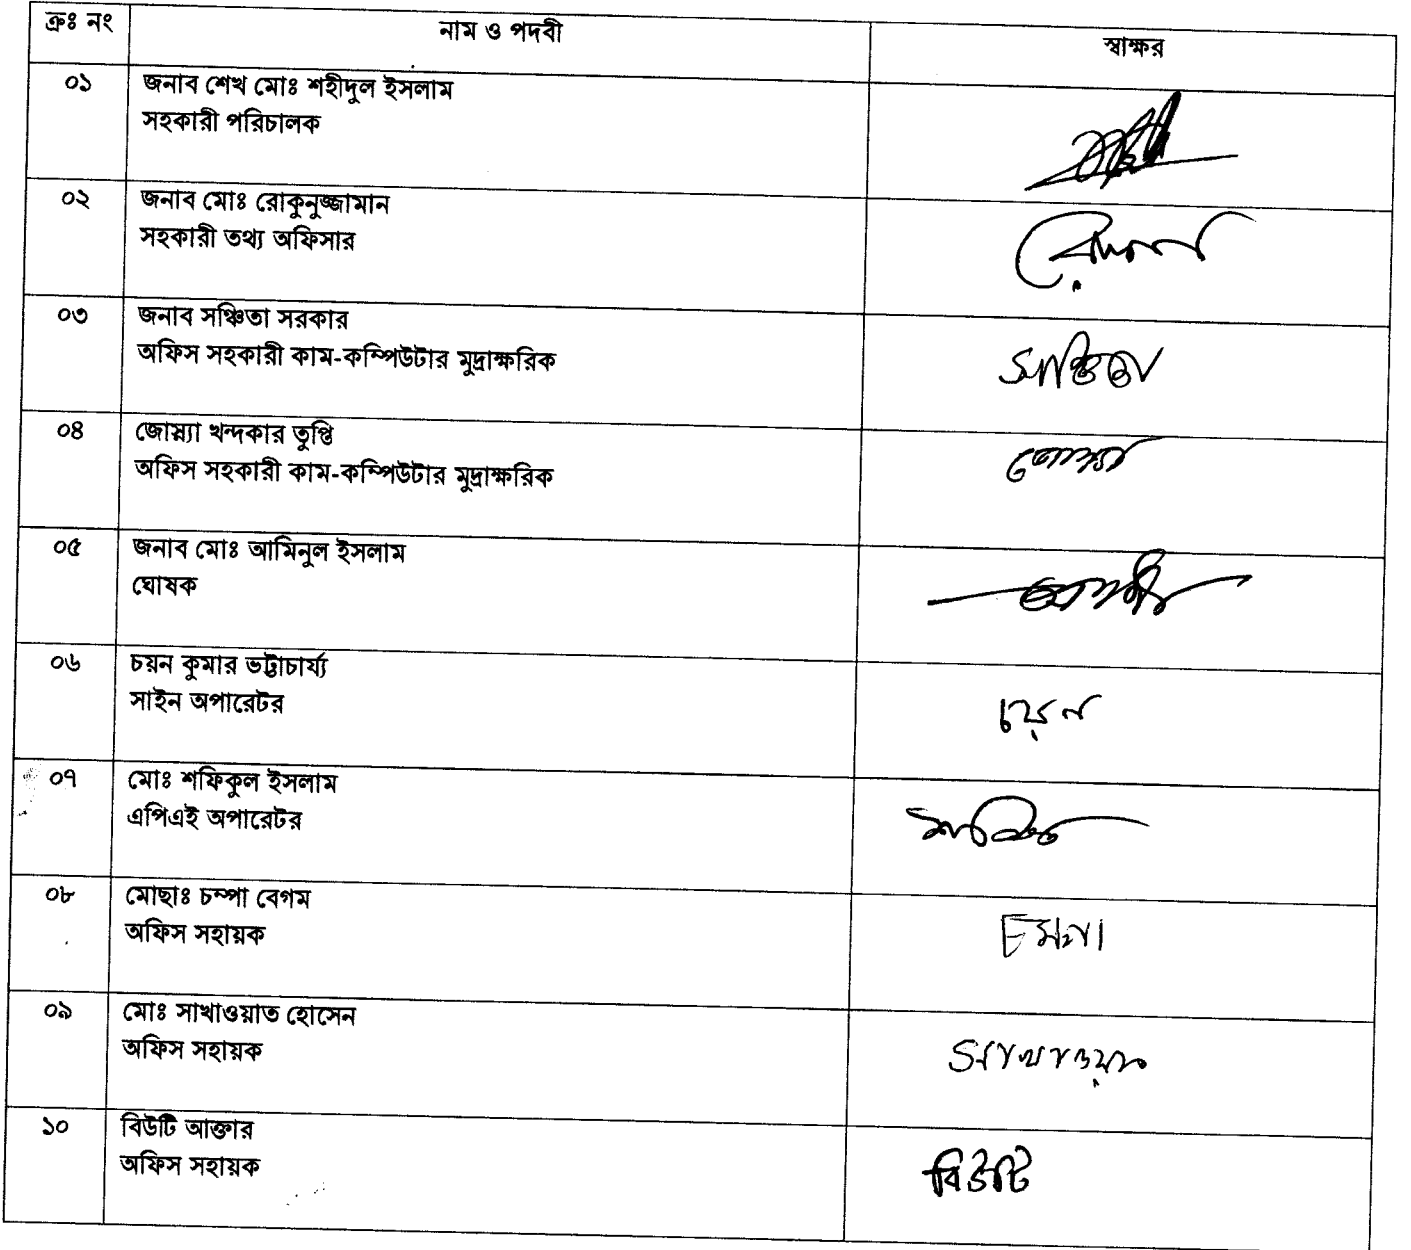 ক্রঃ নং নাম ও পদবী স্বাক্ষর
০১ জনাব শেখ মোঃ শহীদুল ইসলাম
সহকারী পরিচালক
০২ জনাব মোঃ রোকুনুজ্জামান
সহকারী তথ্য অফিসার
০৩ জনাব সঞ্চিতা সরকার
অফিস সহকারী কাম-কম্পিউটার মুদ্রাক্ষরিক
সঞ্চিতা
০৪ জোস্ন্যা খন্দকার তুপ্তি
অফিস সহকারী কাম-কম্পিউটার মুদ্রাক্ষরিক
০৫ জনাব মোঃ আমিনুল ইসলাম
ঘোষক
০৬ চয়ন কুমার ভট্টাচার্য্য
সাইন অপারেটর
চয়ন
০৭ মোঃ শফিকুল ইসলাম
এপিএই অপারেটর
০৮ মোছাঃ চম্পা বেগম
অফিস সহায়ক
০৯ মোঃ সাখাওয়াত হোসেন
অফিস সহায়ক
সাখাওয়াত
১০ বিউটি আক্তার
অফিস সহায়ক
বিউটি